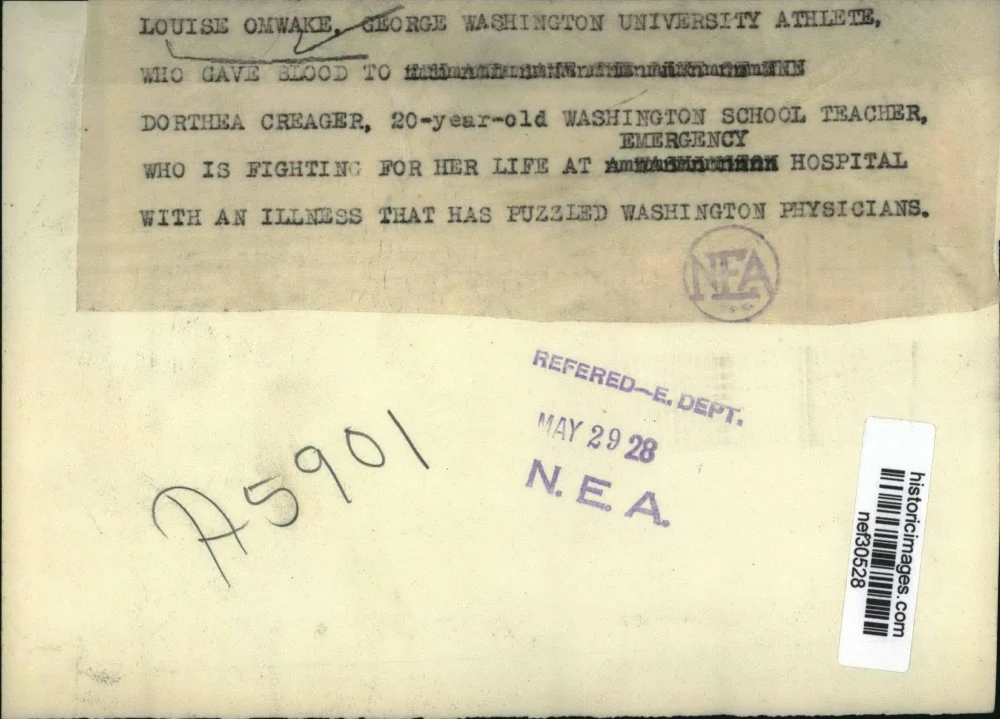 LOUISE OMWAKE, GEORGE WASHINGTON UNIVERSITY ATHLETE,
WHO GAVE BLOOD TO
DORTHEA CREAGER, 20-year-old WASHINGTON SCHOOL TEACHER,
EMERGENCY
WHO IS FIGHTING FOR HER LIFE AT HOSPITAL
WITH AN ILLNESS THAT HAS PUZZLED WASHINGTON PHYSICIANS.
NEA
REFERED-E. DEPT.
MAY 29 28
N. E. A.
A5901
historicimages.com
nef30528